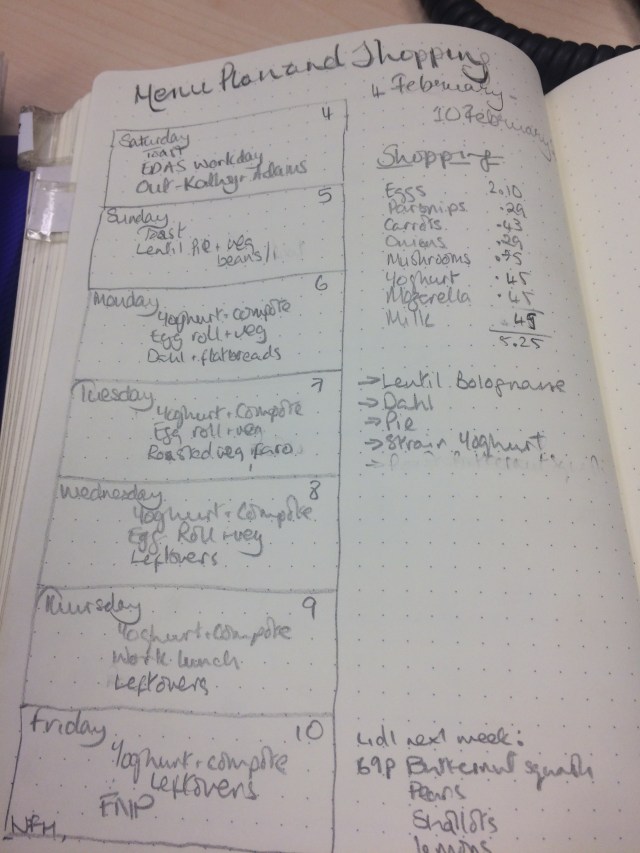 Menu Plan and Shopping
4 February -
10 February
Saturday 4
Toast
EDAS Workday
Out - Kathryn Adams
Sunday 5
Toast
Lentil Pie + veg
beans
Monday 6
Yoghurt + compote
Egg roll + veg
Dahl + flatbreads
Tuesday 7
Yoghurt + compote
Egg roll + veg
Roasted veg, Faro
Wednesday 8
Yoghurt + compote
Egg Roll + veg
Leftovers
Thursday 9
Yoghurt + compote
Work lunch
Leftovers
Friday 10
Yoghurt + compote
Leftovers
FNP
NFH
Shopping
Eggs 2.10
Parsnips .29
Carrots .43
Onions .29
Mushrooms .75
Yoghurt .45
Mozerella .45
Milk .49
5.25
→ Lentil Bolognaise
→ Dahl
→ Pie
→ Strain Yoghurt
Aldi next week:
69p Butternut squash
Pears
Shallots
lemons